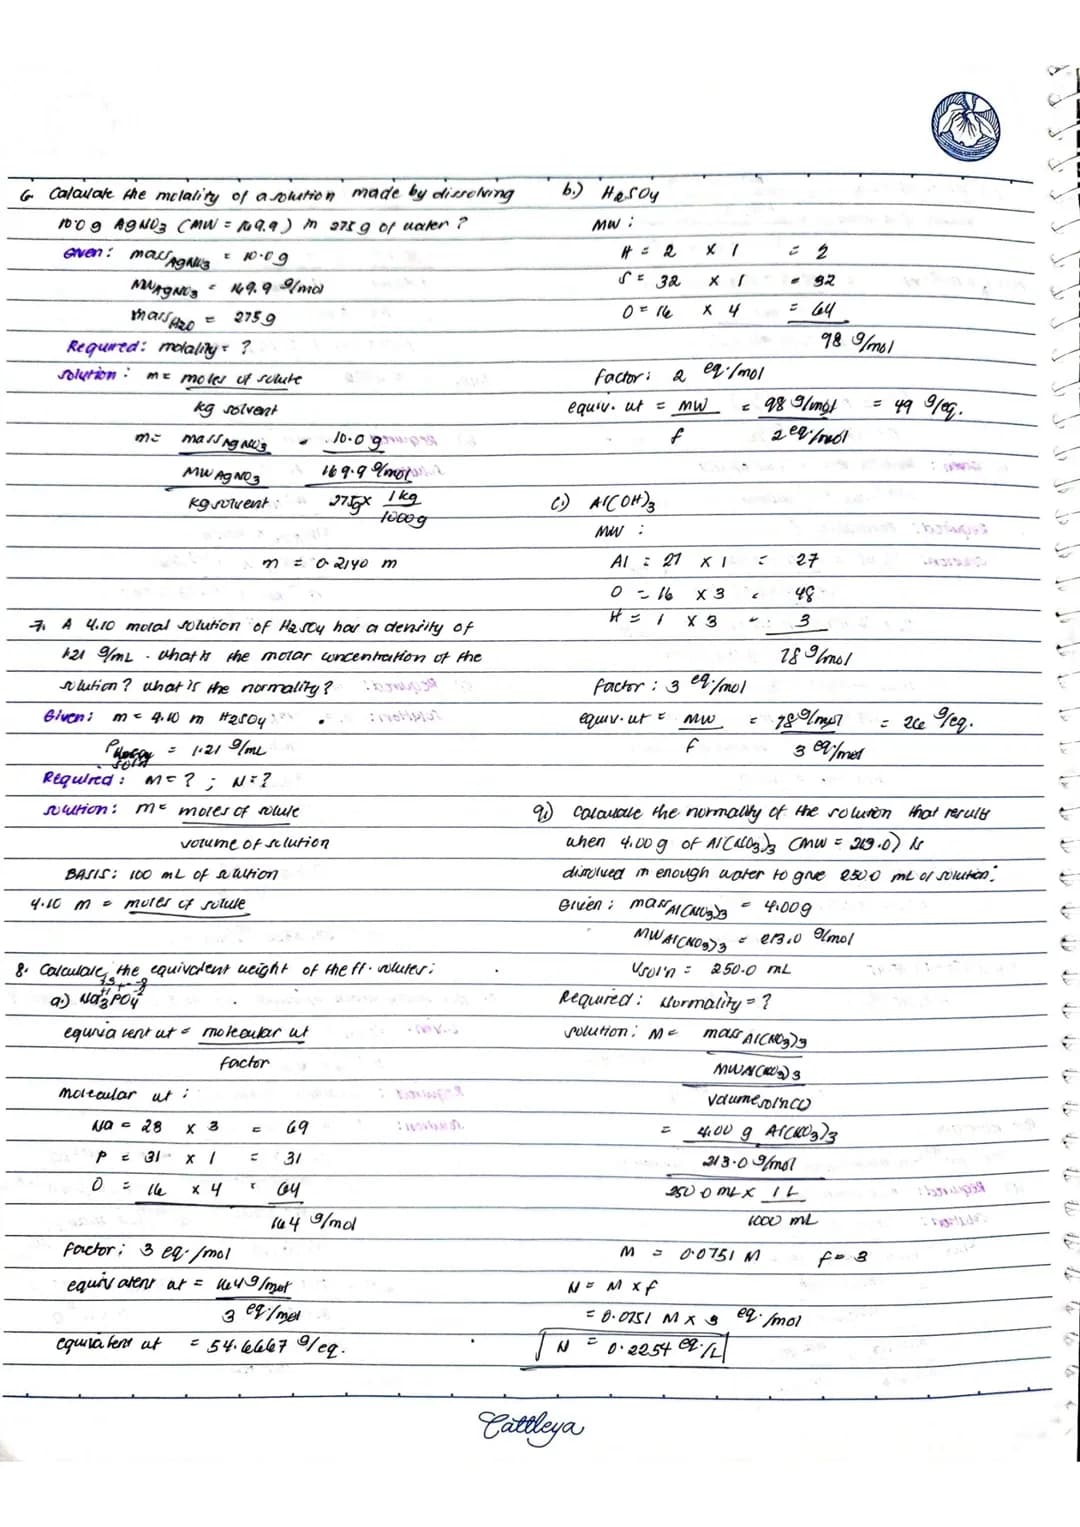 6. Calculate the molality of a solution made by dissolving
10.0 g AgNO3 (MW = 169.9) in 275 g of water?
Given: mass AgNO3 = 10.0 g
MW AgNO3 = 169.9 g/mol
mass H2O = 275 g
Required: molality = ?
solution: m = moles of solute
kg solvent
m = mass AgNO3 = 10.0 g
MW AgNO3 169.9 g/mol
kg solvent 275g x 1 kg
1000 g
m = 0.2140 m
7. A 4.10 molal solution of H2SO4 has a density of
1.21 g/mL. what is the molar concentration of the
solution? what is the normality?
Given: m = 4.10 m H2SO4
ρ soln = 1.21 g/mL
Required: M = ? ; N = ?
solution: M = moles of solute
volume of solution
BASIS: 100 mL of solution
4.10 m = moles of solute
8. Calculate the equivalent weight of the ff. solutes:
a.) Na3PO4
equivalent wt = molecular wt
factor
molecular wt:
Na = 23 x 3 = 69
P = 31 x 1 = 31
O = 16 x 4 = 64
164 g/mol
factor: 3 eq./mol
equivalent wt = 164 g/mol
3 eq./mol
equivalent wt = 54.6667 g/eq.
b.) H2SO4
MW:
H = 2 x 1 = 2
S = 32 x 1 = 32
O = 16 x 4 = 64
98 g/mol
factor: 2 eq./mol
equiv. wt = MW = 98 g/mol = 49 g/eq.
f 2 eq./mol
c.) Al(OH)3
MW :
Al = 27 x 1 = 27
O = 16 x 3 = 48
H = 1 x 3 = 3
78 g/mol
factor: 3 eq./mol
equiv. wt = MW = 78 g/mol = 26 g/eq.
f 3 eq./mol
9.) Calculate the normality of the solution that results
when 4.00 g of Al(NO3)3 (MW = 213.0) is
dissolved in enough water to give 250.0 mL of solution.
Given: mass Al(NO3)3 = 4.00 g
MW Al(NO3)3 = 213.0 g/mol
Vsol'n = 250.0 mL
Required: Normality = ?
solution: M = mass Al(NO3)3
MW Al(NO3)3
Volume sol'n (L)
= 4.00 g Al(NO3)3
213.0 g/mol
250.0 mL x 1 L
1000 mL
M = 0.0751 M f = 3
N = M x f
= 0.0751 M x 3 eq./mol
N = 0.2254 eq./L
Cattleya